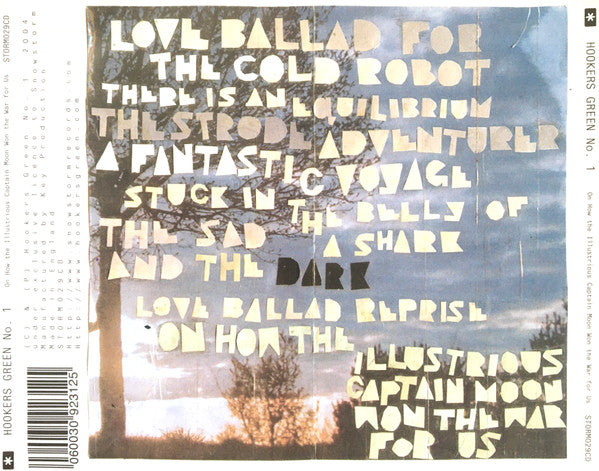 LOVE BALLAD FOR
THE COLD ROBOT
THERE IS AN EQUILIBRIUM
THESTRODE ADVENTURER
A FANTASTIC VOYAGE
STUCK IN THE BELLY OF
A SHARK
THE SAD
AND THE DARK
LOVE BALLAD REPRISE
ON HOW THE
ILLUSTRIOUS
CAPTAIN MOON
WON THE WAR
FOR US
* HOOKERS GREEN No. 1 On How the Illustrious Captain Moon Won the War for Us STORM029CD
* HOOKERS GREEN No. 1 On How the Illustrious Captain Moon Won the War for Us STORM029CD
(C) & (P) Hookers Green No. 1 2004
under exclusive licence to Snowstorm
Manufactured by Key Production
Made in England
STORM029CD
060030 923125